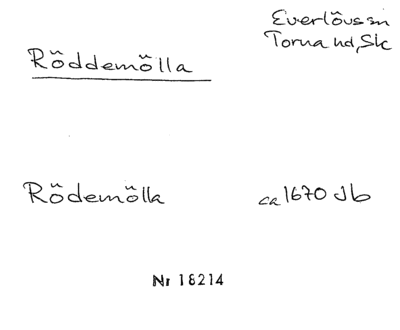 Everlövs sn
Torna hd, Sk
Röddemölla
Rödemölla ca 1670 Jb
Nr 18214